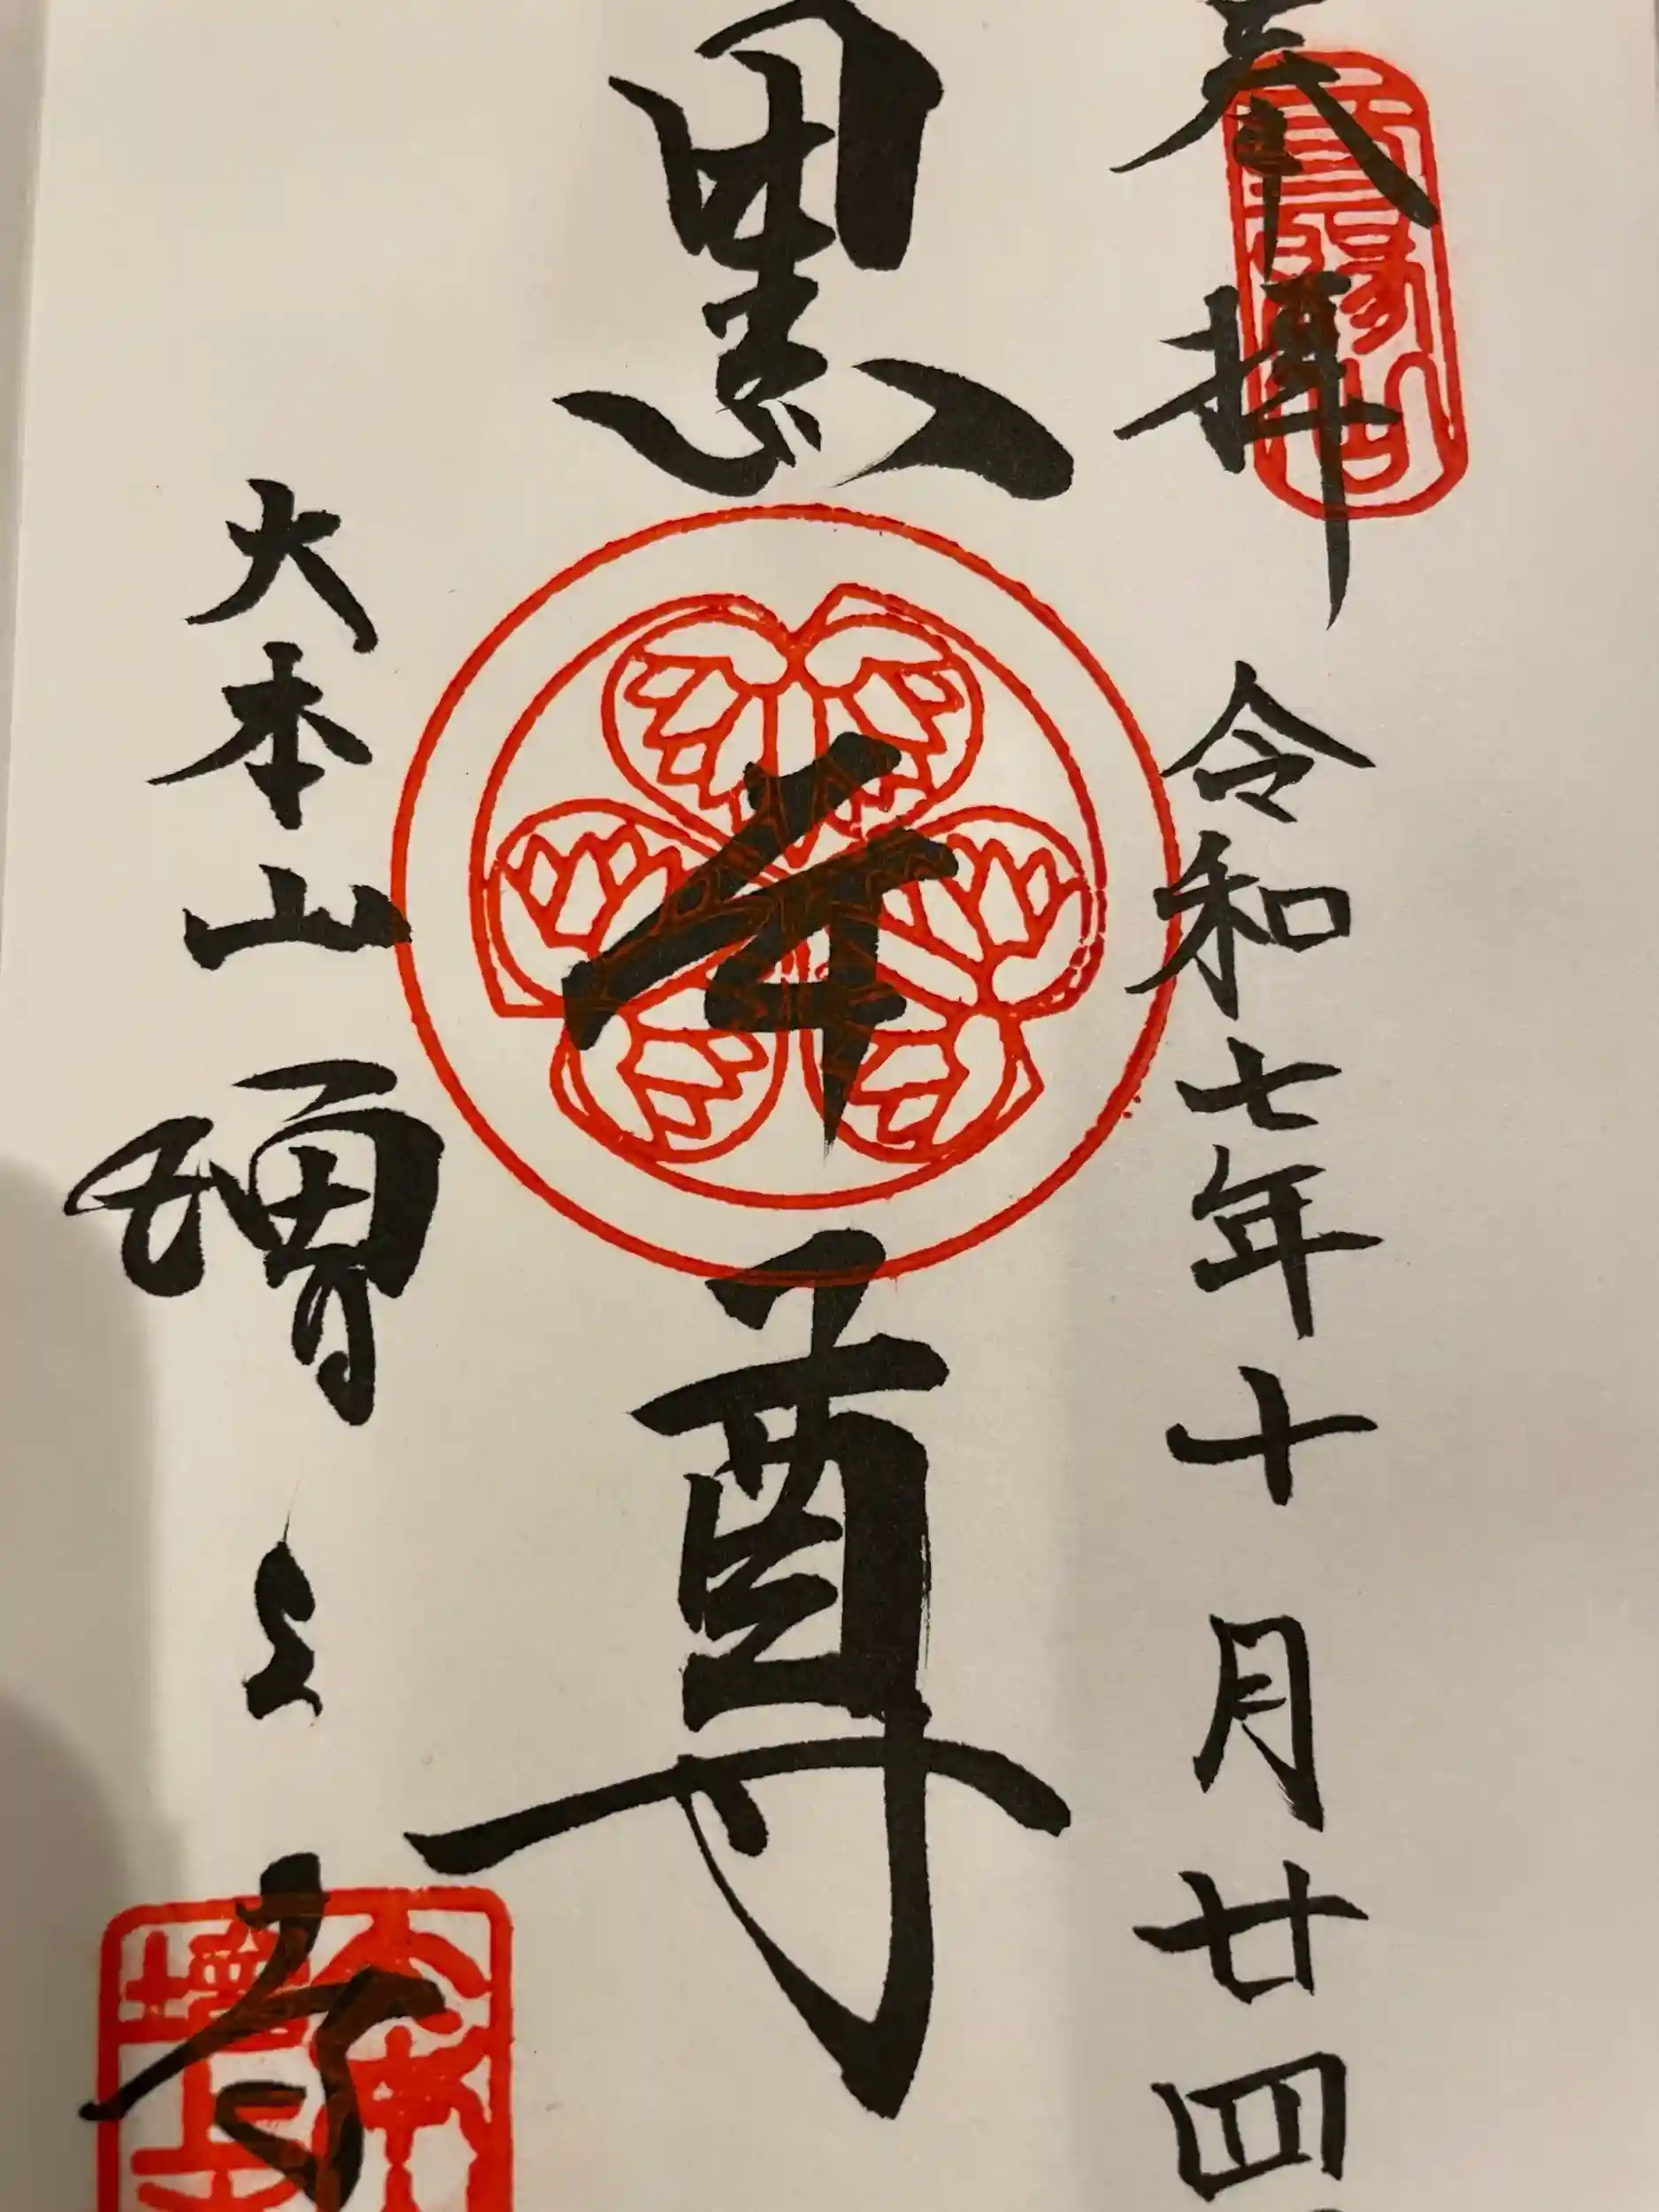 奉拝 令和七年十月廿四
黒本尊
大本山 増上寺